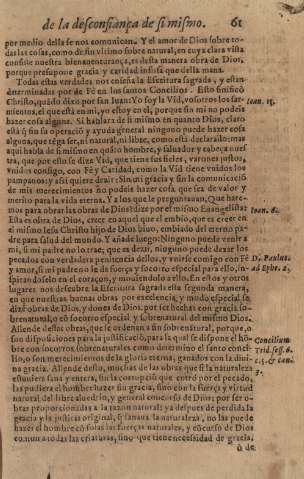 de la desconfiança de si mismo. 61
por medio della se nos comunican. Y el amor de Dios sobre to
das las cosas, como de su vltimo sobre natural, en cuya clara vista
consiste nuestra bienauenturança, es desta manera obra de Dios,
porque presupone gracia y caridad infusa que della mana.
Todas estas verdades nos enseña la Escritura sagrada, y estan
determinadas por de Fè en los santos Concilios. Esto sinificò
Christo, quãdo dixo por san Iuan: Yo soy la Vid, vosotros los sar-
Ioan. 15.
mientos, el que està en mi, yo estoy en el, porque sin mi no podeis
hazer cosa alguna. Si hablara de si mismo en quanto Dios, claro
està q̃ sin su operaciõ y ayuda general ninguno puede hazer cosa
alguna, que tẽga ser, ni natural, ni libre, como està declarado: mas
aqui habla de si mismo en quãto hombre, y saluador y cabeça nues
tra, que por esto se dize Vid, que tiene sus fieles, varones justos,
vnidos consigo, con Fè y Caridad, como la Vid tiene vnidos los
pampanos: y assi quiere dezir: Sin mi gracia y sin la comunicaciõ
de mis merecimientos nõ podeis hazer cosa que sea de valor y
merito para la vida eterna. Y a los que le preguntauan, Que hare-
mos para obrar las obras de Dios? dize por el mismo Euangelista:
Ioan. 6.
Esta es obra de Dios, creer en aquel que el embiò, que es creer en
el mismo Iesu Christo hijo de Dios viuo, embiado del eterno pa-
dre para salud del mundo. Y añade luego: Ninguno puede venir a
mi, si mi padre no lo trae, que es dezir, ninguno puede dexar los
pecados con verdadera penitencia dellos, y vnirse comigo con Fè
D. Paulus.
y amor, si mi padre no le da fuerça y socorro especial para ello, in-
ad Ephe. 2.
spirandoselo en el coraçon, y mouiendolo a ello. En estos y otros
lugares nos descubre la Escritura sagrada esta segunda manera,
en que nuestras buenas obras por excelencia, y modo especial se
dizẽ obras de Dios, y dones de Dios, por ser hechas con gracia so-
brenatural, o cõ socorro especial y sobrenatural del mismo Dios.
Allende destos obras, que le ordenan a fin sobrenatural, porque, o
son disposiciones para la justificaciõ, para la qual se dispone el hõ-
Concilium
bre con socorros sobrenaturales, como determinò el santo conci-
Trid. ses. 6.
lio, o son merecimientos de la gloria eterna, ganados con la diui-
c. 5. & cani.
na gracia. Allende desto, muchas de las obras que si la naturaleza
3.
estuuiera sana y entera, sin la corrupciõ que entrò por el pecado,
las pudiera el hombre hazer sin gracia, sino con la fuerça y virtud
natural, del libre aluedrio, y general concurso de Dios, por ser o-
bras proporcionadas a la razon natural: ya despues de perdida la
gracia y la justicia original, q̃ sanaua la naturaleza, no las puede
hazer el hombre cõ solas las fuerças naturales, y cõcurso de Dios
comun a todas las criaturas, sino que tiene necessidad de gracia,
ù de